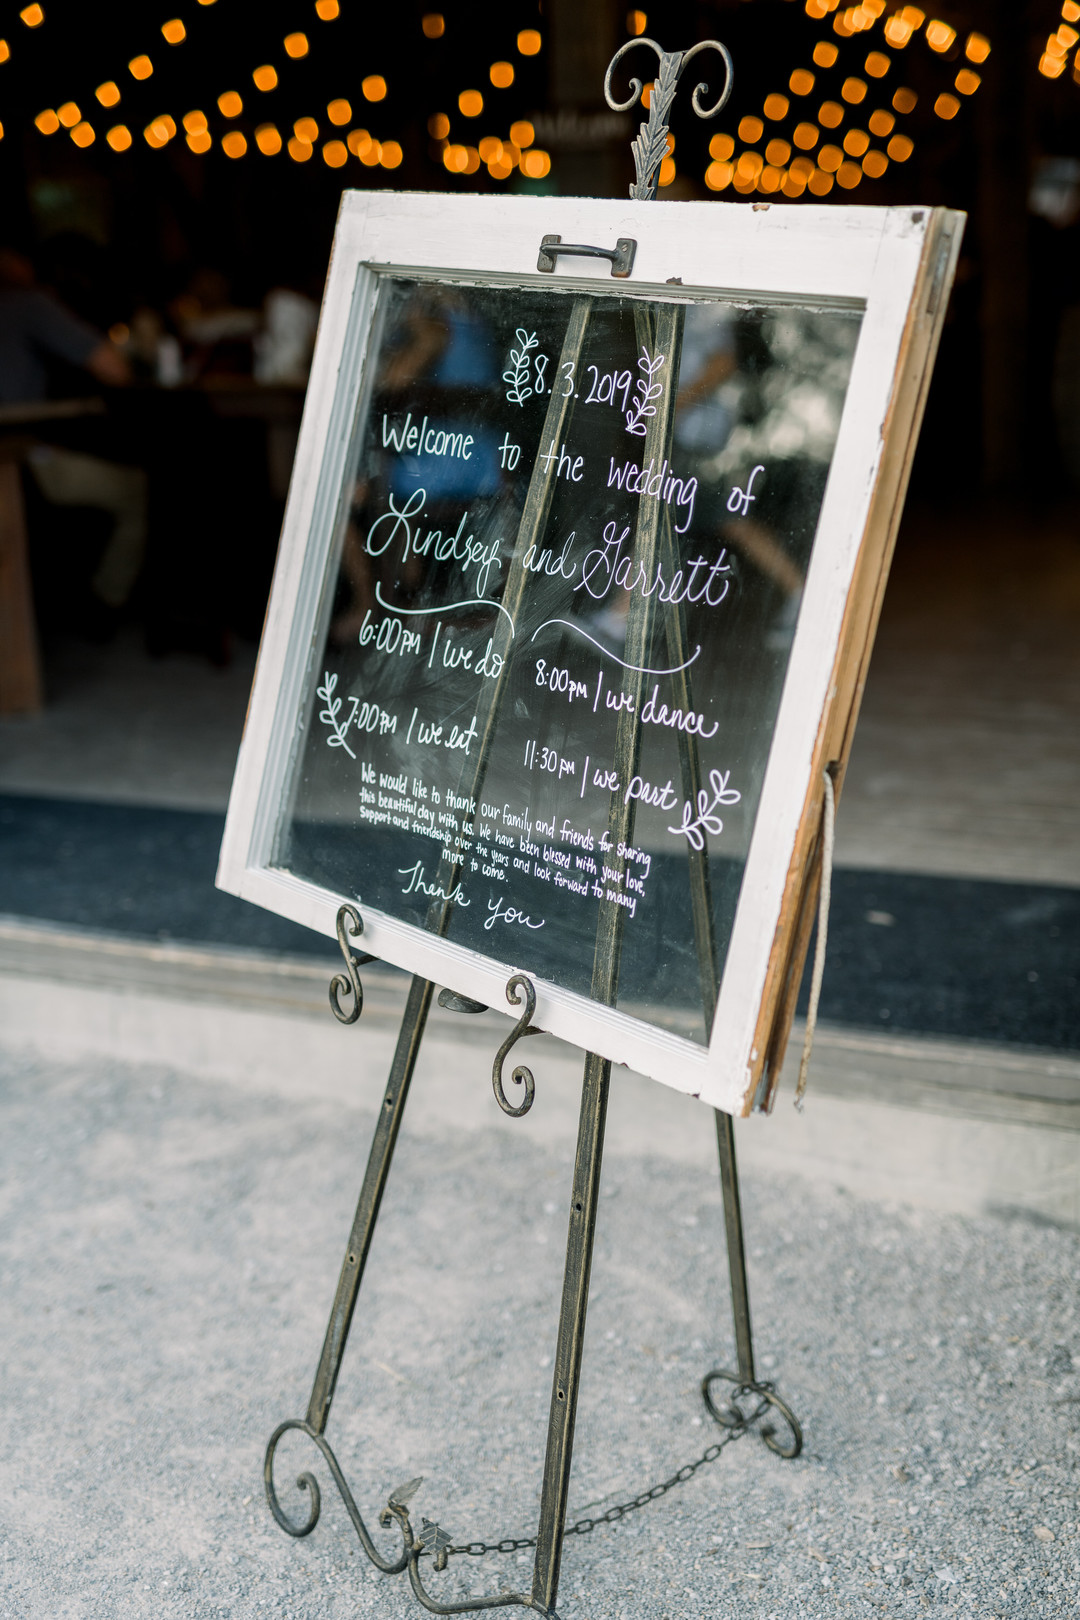 8.3.2019
Welcome to the wedding of
Lindsey and Garrett
6:00PM | we do
7:00PM | we eat
8:00PM | we dance
11:30PM | we part
We would like to thank our family and friends for sharing
this beautiful day with us. We have been blessed with your love,
support and friendship over the years and look forward to many
more to come.
Thank you